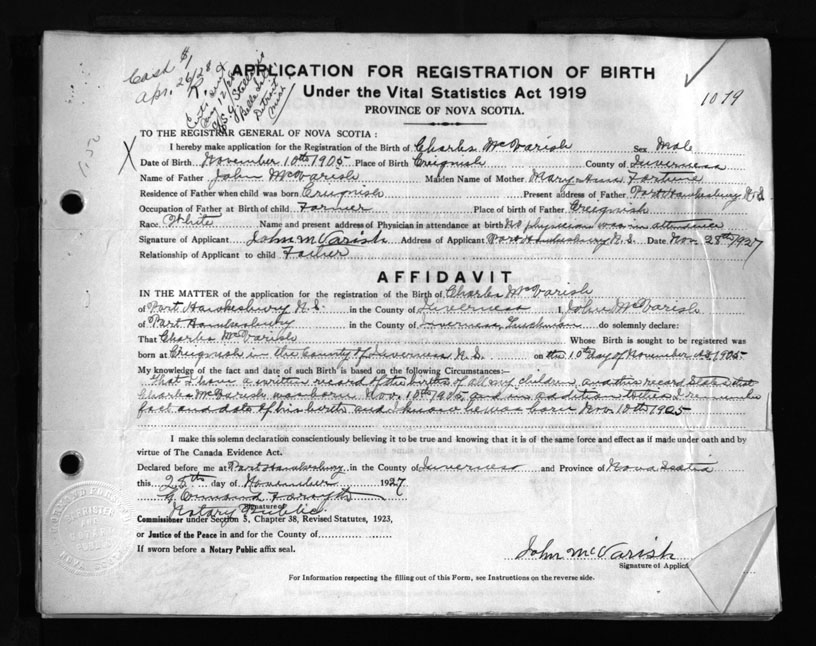 Cash $1
Apr. 26/28
Detroit
Mich
APPLICATION FOR REGISTRATION OF BIRTH
Under the Vital Statistics Act 1919
PROVINCE OF NOVA SCOTIA.
1079
TO THE REGISTRAR GENERAL OF NOVA SCOTIA:
I hereby make application for Registration of the Birth of Charles McVarish Sex Male
Date of Birth November 10th 1905 Place of Birth Creignish County of Inverness
Name of Father John McVarish Maiden Name of Mother Mary Anne Fortune
Residence of Father when child was born Creignish Present address of Father Port Hawkesbury N.S
Occupation of Father at Birth of child Farmer Place of birth of Father Creignish
Race White Name and present address of Physician in attendance at birth No physician was in attendance
Signature of Applicant John McVarish Address of Applicant Port Hawkesbury N.S. Date Nov. 28th 1927
Relationship of Applicant to child Father
AFFIDAVIT
IN THE MATTER of the application for the registration of the Birth of Charles McVarish
of Port Hawkesbury N.S. in the County of Inverness I, John McVarish
of Port Hawkesbury in the County of Inverness, Truckman do solemnly declare:
That Charles McVarish Whose Birth is sought to be registered was
born at Creignish in the County of Inverness N.S. on the 10th day of November 1905
My knowledge of the fact and date of such Birth is based on the following Circumstances:—
That I have a written record of the births of all my children, and this record states that
Charles McVarish was born Nov. 10th 1905, and in addition to this I remember
fact and date of his birth and I know he was born Nov. 10th 1905
I make this solemn declaration conscientiously believing it to be true and knowing that it is of the same force and effect as if made under oath and by
virtue of The Canada Evidence Act.
Declared before me at Port Hawkesbury in the County of Inverness and Province of Nova Scotia
this 25th day of November 1927
Forsyth
Signature of
Notary Public
Commissioner under Section 5, Chapter 38, Revised Statutes, 1923,
or Justice of the Peace in and for the County of
If sworn before a Notary Public affix seal.
John McVarish
Signature of Applica
For Information respecting the filling out of this Form, see Instructions on the reverse side.